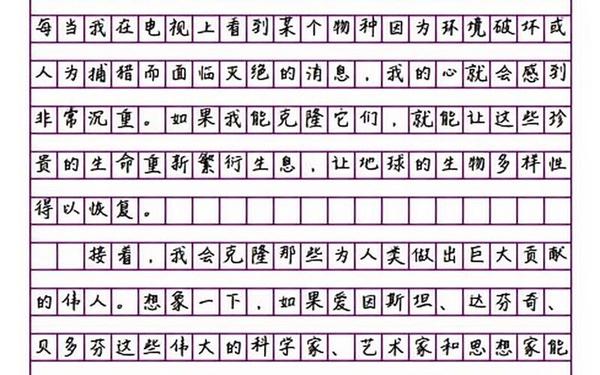 每当我在电视上看到某个物种因为环境破坏或
人为捕猎而面临灭绝的消息，我的心就会感到
非常沉重。如果我能克隆它们，就能让这些珍
贵的生命重新繁衍生息，让地球的生物多样性
得以恢复。
接着，我会克隆那些为人类做出巨大贡献
的伟人。想象一下，如果爱因斯坦、达芬奇、
贝多芬这些伟大的科学家、艺术家和思想家能